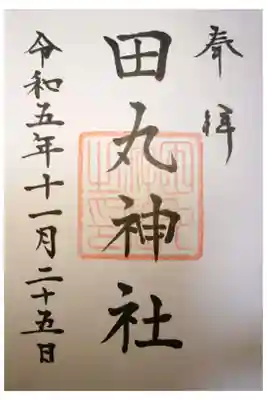 奉拝
田丸神社
令和五年十一月二十五日